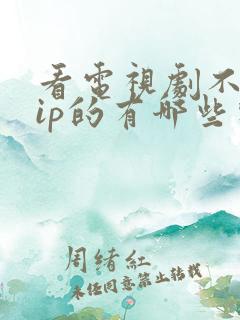 看電視劇不
ip的有哪些
周緒紅
未经同意禁止转载